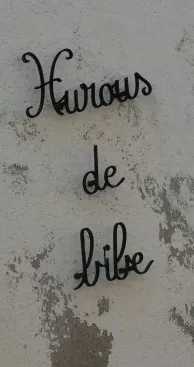 Hurous
de
bibe